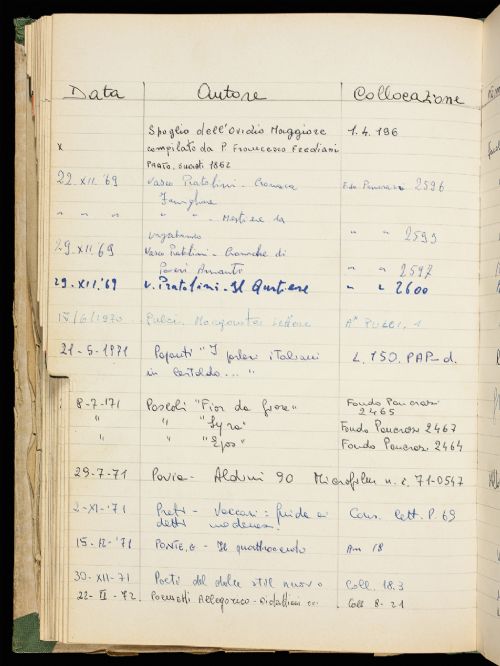 Data Autore Collocazione
Spoglio dell'Ovidio Maggiore 1.4.196
x compilato da P. Francesco Frediani
PRATO, Guasti 1852
22. XII. '69 Vasco Pratolini - Cronaca Fdo Pancrazi 2596
Famigliare
" " " " " - Mestiere da
vagabondo " " 2599
29. XII. '69 Vasco Pratolini - Cronache di
Poveri Amanti " " 2597
29. XII. '69 V. Pratolini - Il Quartiere " " 2600
/6/1970 Pulci. Morgante A* PULCI. 1
21-5-1971 "I poeti italiani L. 150. PAP-d.
in ... "
8-7-'71 Pascoli "Fior da fiore" Fondo Pancrazi
2465
" " "Lyra" Fondo Pancrazi 2467
" " "Epos" Fondo Pancrazi 2464
29-7-71 Pavia - Aldini 90 Microfilm n. c. 71-0547
2-XI-'71 Preti - Vaccari: guida ai Cons. lett. P. 69
detti modenesi
PONTE, G - Il quattrocento Am 18
30-XII-71 Poeti del dolce stil nuovo Coll. 18.3
22-II-72. Poemetti Allegorico-Didattici Coll 8-21